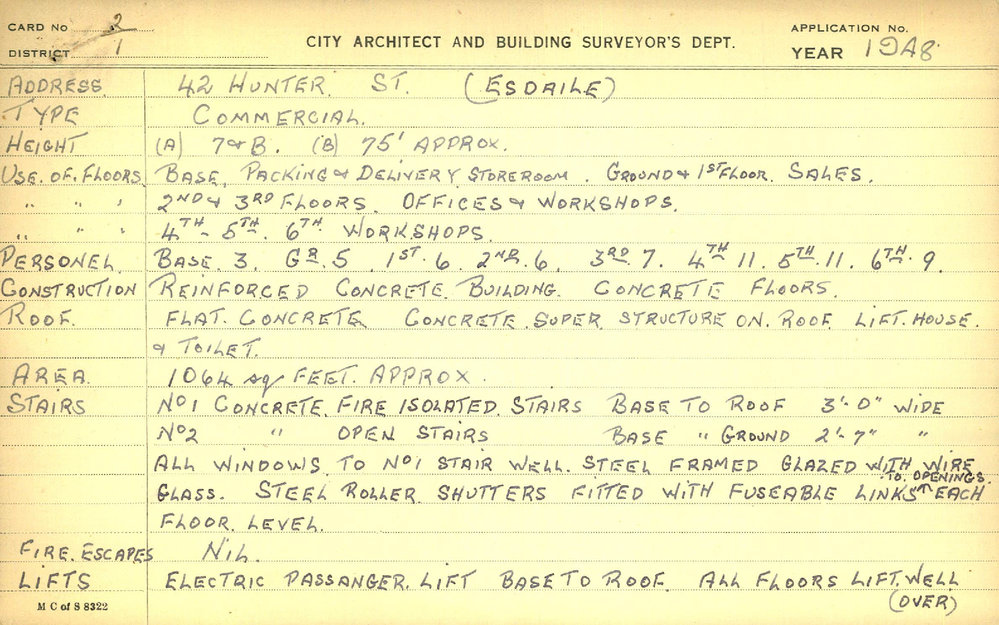 CARD No 2
DISTRICT 1
CITY ARCHITECT AND BUILDING SURVEYOR'S DEPT.
APPLICATION No.
YEAR 1948
ADDRESS 42 HUNTER. ST. (ESDAILE)
TYPE COMMERCIAL.
HEIGHT (A) 7 & B. (B) 75' APPROX.
USE. OF. FLOORS. BASE, PACKING & DELIVERY, STOREROOM. GROUND & 1ST FLOOR. SALES.
" " " 2ND & 3RD FLOORS. OFFICES & WORKSHOPS.
" " " 4TH - 5TH. 6TH WORKSHOPS.
PERSONEL. BASE. 3. GR. 5 1ST. 6. 2ND. 6. 3RD 7. 4TH 11. 5TH. 11. 6TH. 9.
CONSTRUCTION REINFORCED CONCRETE. BUILDING. CONCRETE FLOORS.
ROOF. FLAT. CONCRETE. CONCRETE. SUPER. STRUCTURE ON. ROOF. LIFT. HOUSE.
& TOILET.
AREA. 1064 sq FEET. APPROX.
STAIRS No1 CONCRETE. FIRE ISOLATED. STAIRS BASE TO ROOF 3'-0" WIDE
No2 " OPEN STAIRS BASE " GROUND 2'-7" "
ALL WINDOWS. TO No1 STAIR WELL. STEEL FRAMED GLAZED WITH WIRE
GLASS. STEEL ROLLER. SHUTTERS FITTED WITH FUSEABLE LINKS ↑ TO. OPENINGS. EACH
FLOOR. LEVEL.
FIRE. ESCAPES NIL.
LIFTS ELECTRIC PASSANGER. LIFT BASE TO ROOF. ALL FLOORS LIFT. WELL
M C of S 8322 (OVER)